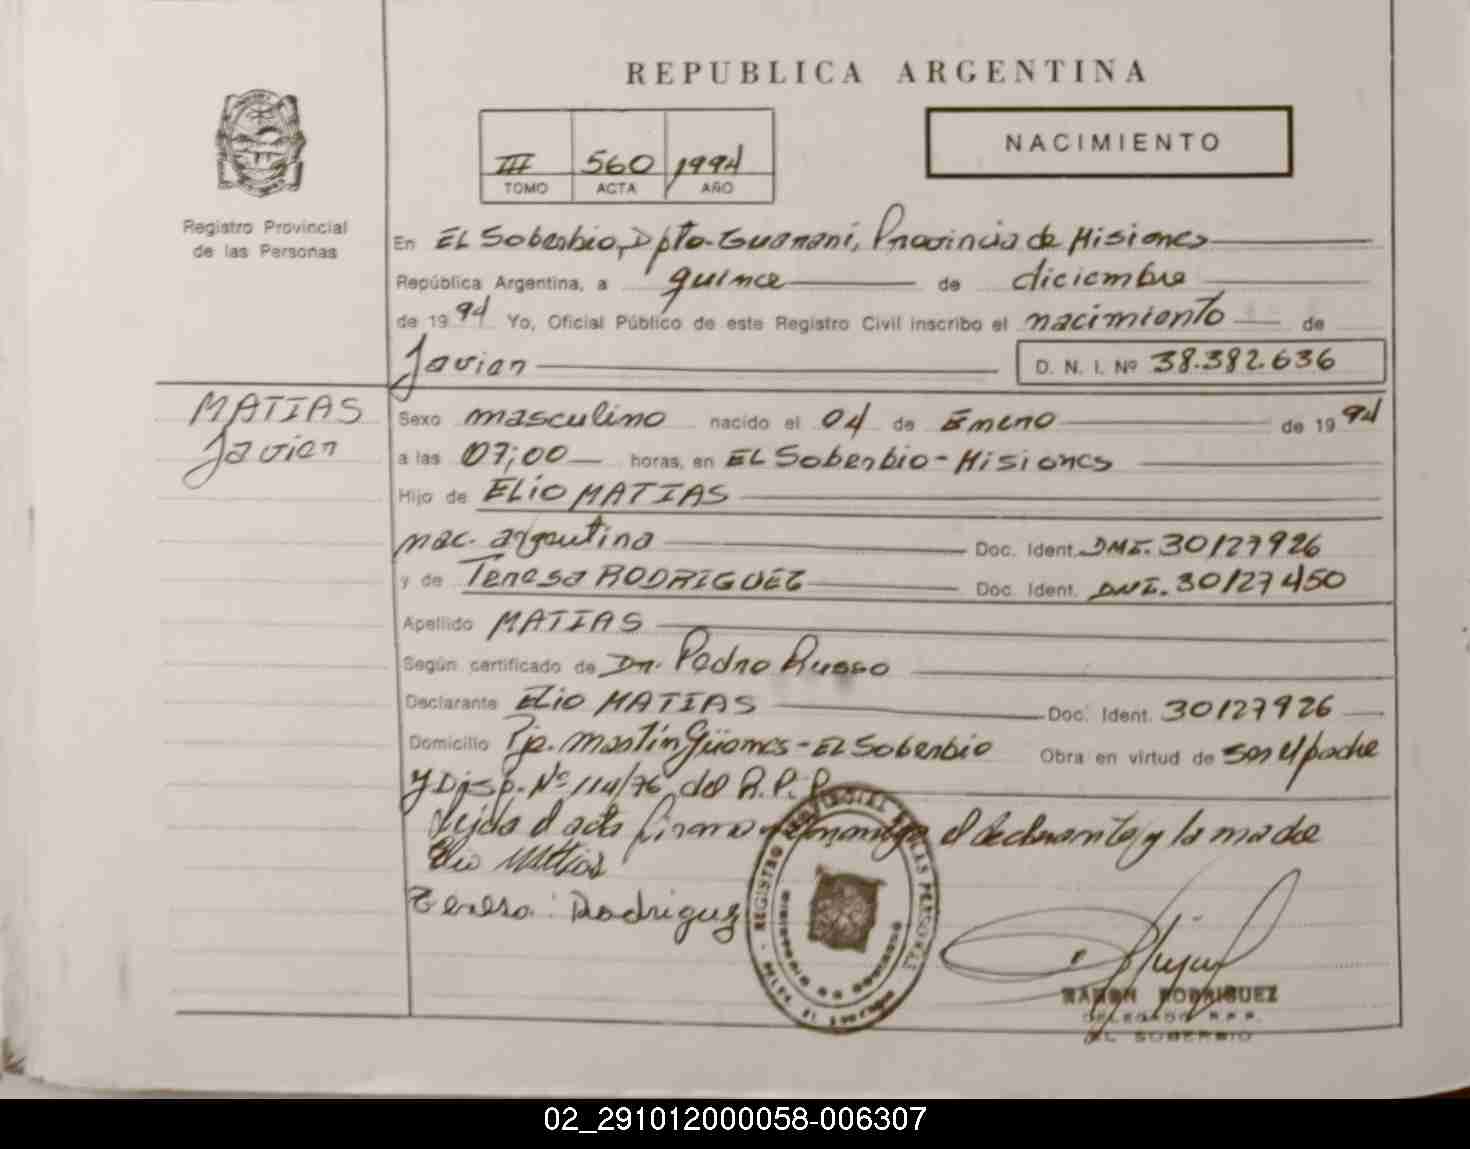 REPUBLICA ARGENTINA
NACIMIENTO
III 560 1994
TOMO ACTA AÑO
Registro Provincial
de las Personas
En EL Soberbio, Dpto. Guaraní, Provincia de Misiones
República Argentina, a quince de diciembre
de 1994 Yo, Oficial Público de este Registro Civil inscribo el nacimiento de
Javier D. N. I. Nº 38.382.636
MATIAS
Javier
Sexo masculino nacido el 04 de Enero de 1994
a las 07;00 horas, en EL Soberbio - Misiones
Hijo de ELIO MATIAS
nac. argentina Doc. Ident. DNI. 30127926
y de Teresa RODRIGUEZ Doc. Ident. DNI. 30127450
Apellido MATIAS
Según certificado de Dr. Pedro Russo
Declarante ELIO MATIAS Doc. Ident. 30127926
Domicilio Pje. Martín Güemes - EL Soberbio Obra en virtud de ser el padre
y Disp. Nº 114/76 del R.P.P.
Leída el acta firma conmigo el declarante y la madre
Elio Matias
Teresa Rodriguez
REGISTRO PROVINCIAL DE LAS PERSONAS
RAMON RODRIGUEZ
DELEGADO R.P.P.
EL SOBERBIO
02_291012000058-006307